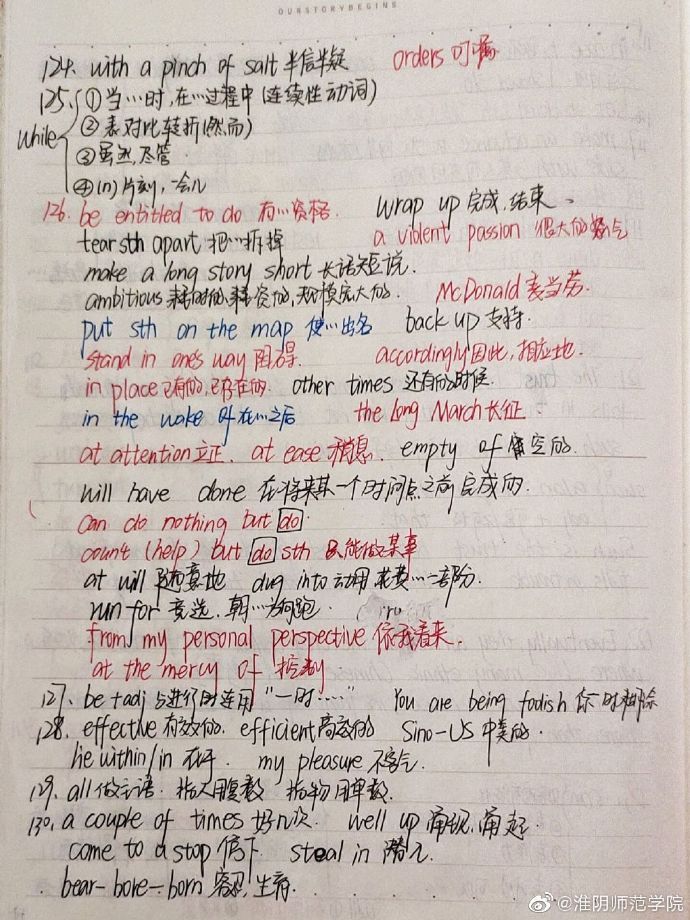 OURSTORYBEGINS
124. with a pinch of salt 半信半疑 orders 叮嘱
125. ① 当…时,在…过程中(连续性动词)
② 表对比转折(然而)
while
③ 虽然,尽管
④ (n) 片刻,一会儿
126. be entitled to do 有…资格. wrap up 完成,结束.
tear sth apart 把…拆掉 a violent passion 很大的
make a long story short 长话短说.
ambitious 耗时的,耗资的,规模宏大的. McDonald 麦当劳.
put sth on the map 使…出名 back up 支持.
stand in one's way 阻碍. accordingly 因此,相应地.
in place 已有的,已存在的 other times 还有的时候.
in the wake of 在…之后 the long March 长征.
at attention 立正. at ease 稍息. empty of 空的.
will have done 在将来某一个时间点之前完成的.
can do nothing but do.
count (help) but do sth 只能做某事
at will 随意地 dug into 动用 花费…一部分.
run for 竞选,朝…方向跑.
from my personal perspective 我看来.
at the mercy of 控制
127. be + adj 与进行时连用 "一时……" You are being foolish 你一时
128. effective 有效的. efficient 高效的 Sino-US 中美的.
lie within/in 在于. my pleasure 不客气.
129. all 做主语. 指人用复数 指物用单数.
130. a couple of times 好几次. well up 涌现,涌起.
come to a stop 停下. steal in 潜入.
bear-bore-born 容忍,生育.
@淮阴师范学院